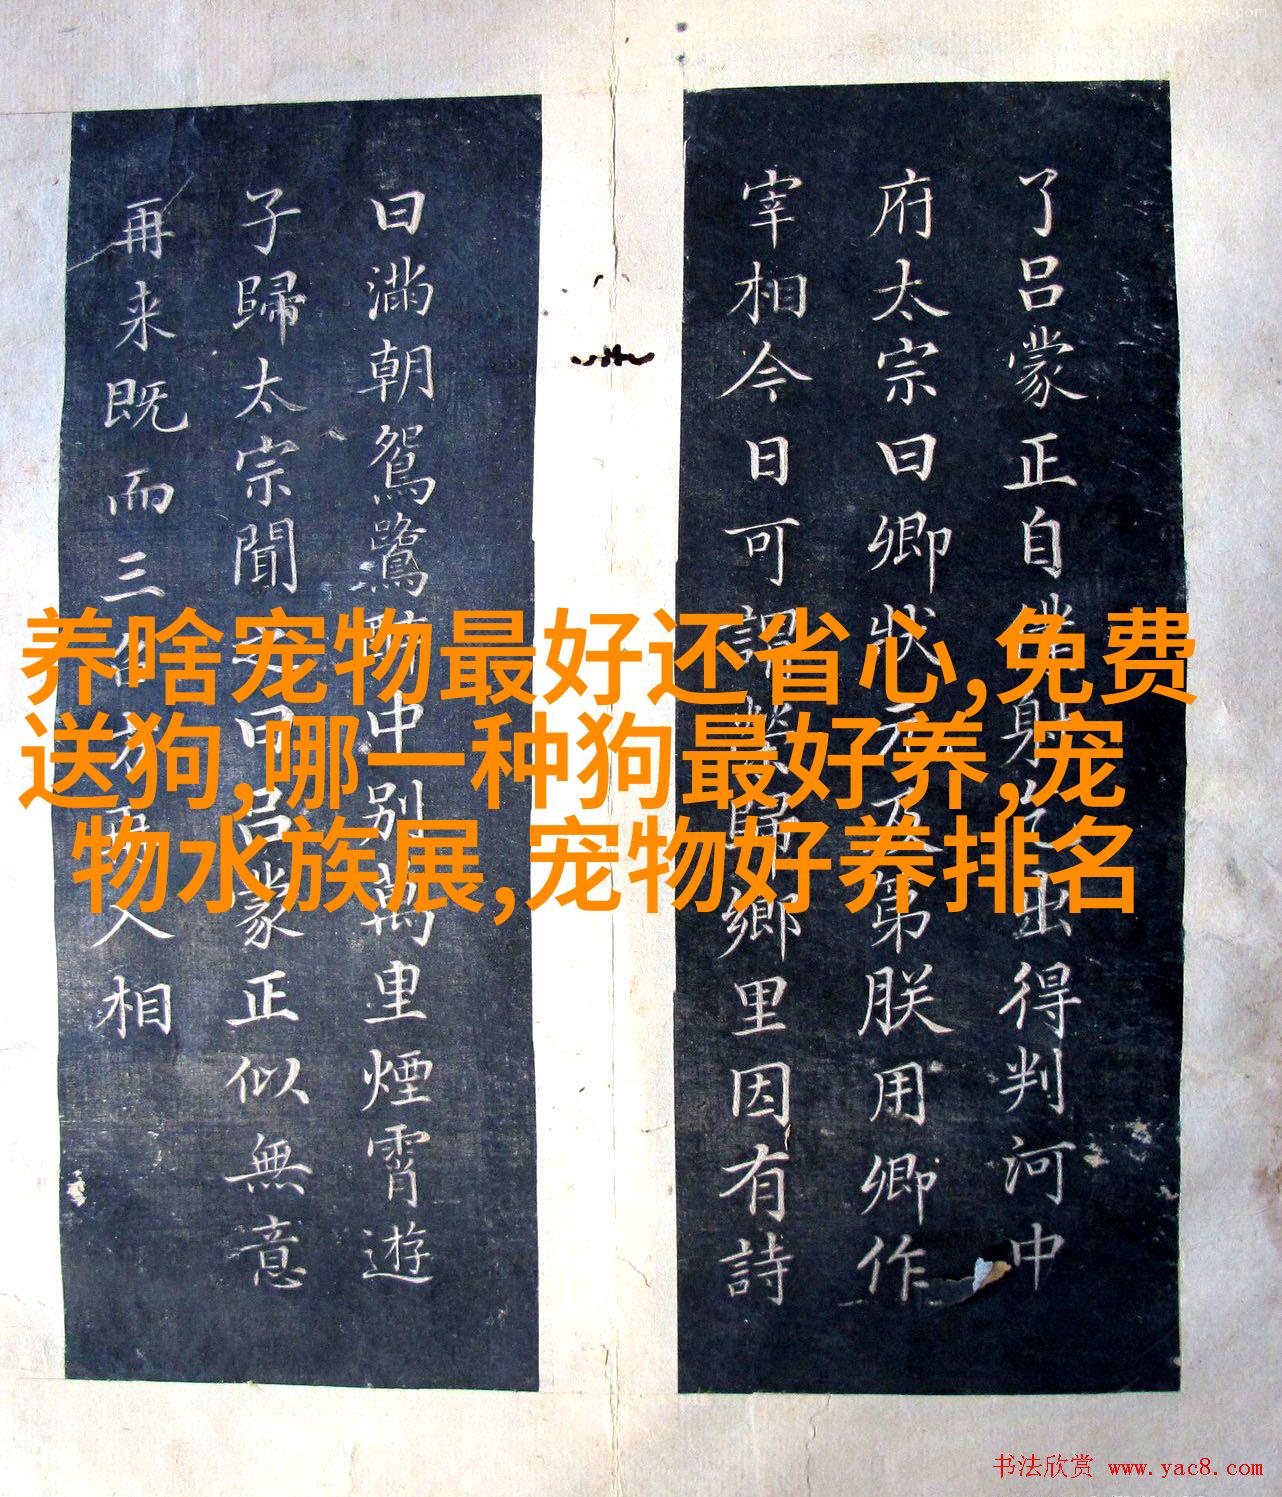 了吕蒙正自
射
出得判河中
府太宗曰卿状元及第朕用卿作
宰相今日可謂
歸鄉里因有詩
曰滿朝鴛鷺
中别萬里煙霄遊
子歸太宗聞
曰吕蒙正似無意
再来既而三
入相
养啥宠物最好还省心,免费
送狗,哪一种狗最好养,宠
物水族展,宠物好养排名
书法欣赏 www.yac8.com